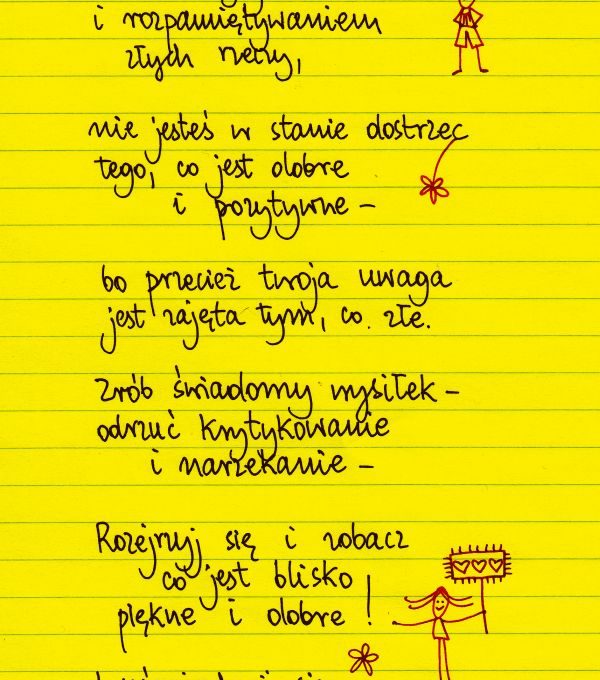 i rozpamiętywaniem
złych rzeczy,
nie jesteś w stanie dostrzec
tego, co jest dobre
i pozytywne –
bo przecież twoja uwaga
jest zajęta tym, co złe.
Zrób świadomy wysiłek –
odrzuć krytykowanie
i narzekanie –
Rozejrzyj się i zobacz
co jest blisko
piękne i dobre!